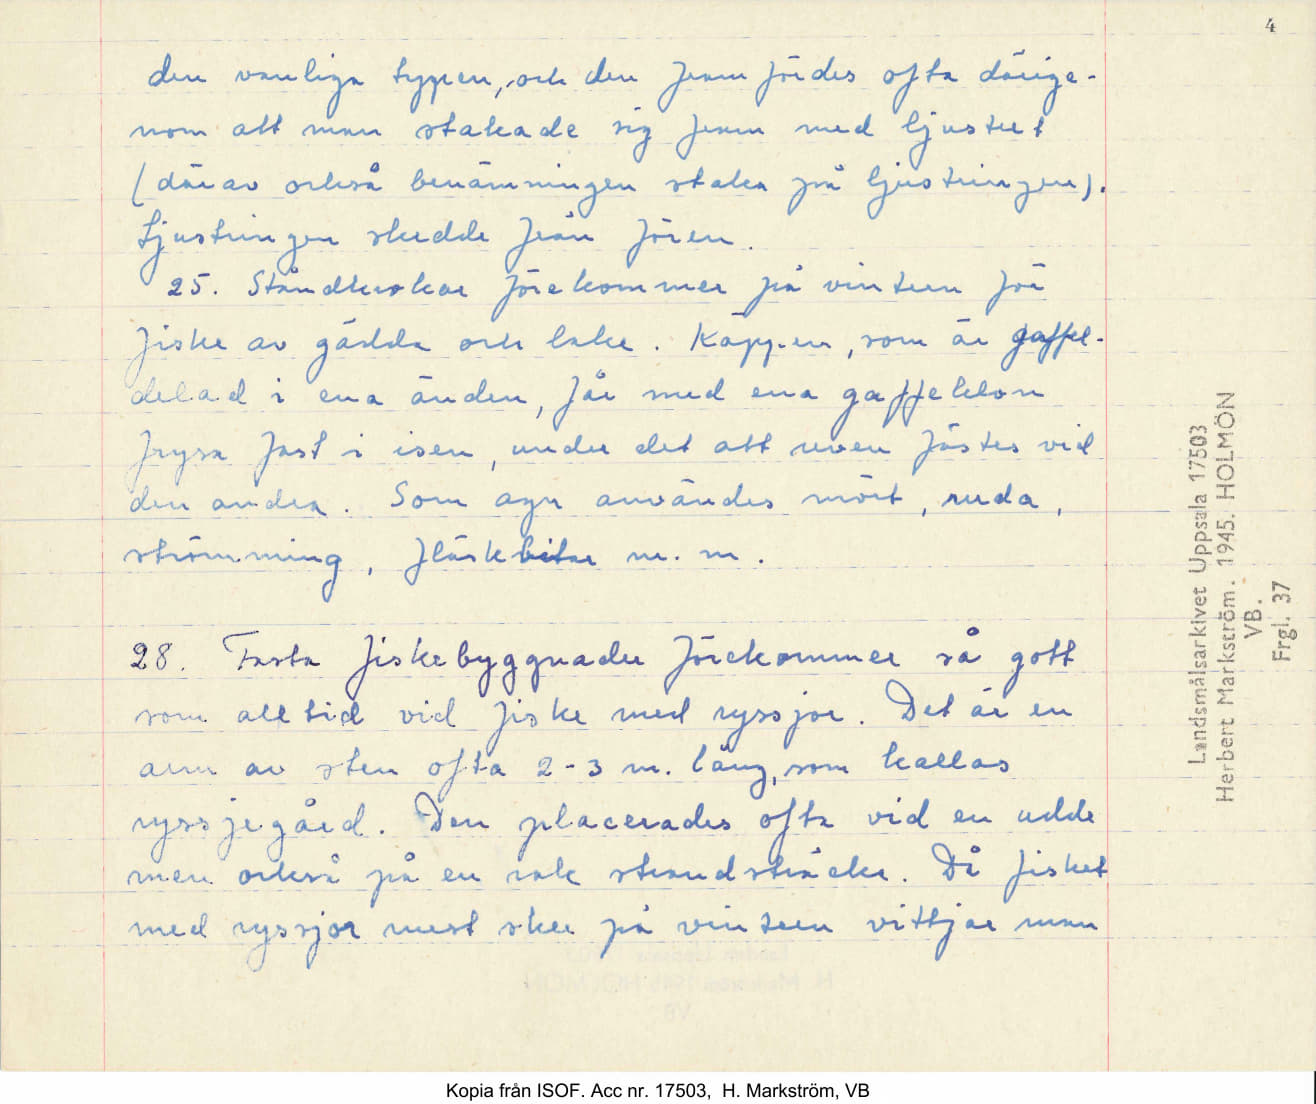 4
den vanliga typen, och den framfördes ofta därige-
nom att man stakade sig fram med ljustret
(därav också benämningen staka på ljustringen).
Ljustringen skedde från fören.
25. Ståndkrokar förekommer på vintern för
fiske av gädda och lake. Käppen, som är gaffel-
delad i ena änden, får med ena gaffelklon
frysa fast i isen, under det att reven fästes vid
den andra. Som agn användes mört, ruda,
strömming, fläskbitar m. m.
28. Fasta fiskebyggnader förekommer så gott
som alltid vid fiske med ryssjor. Det är en
arm av sten ofta 2-3 m. lång, som kallas
ryssjegård. Den placerades ofta vid en udde
men också på en rak strandsträcka. Då fisket
med ryssjor mest sker på vintern vittjar man
Landsmålsarkivet Uppsala 17503
Herbert Markström. 1945. HOLMÖN
VB.
Frgl. 37
Kopia från ISOF. Acc nr. 17503, H. Markström, VB